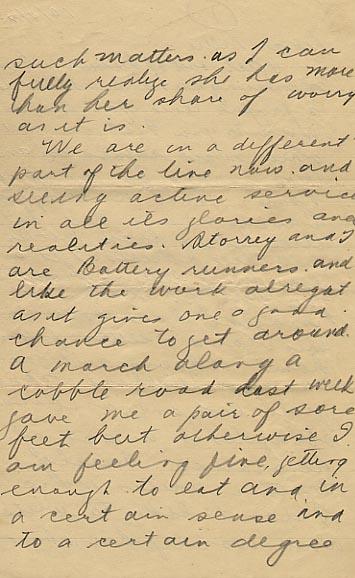 such matters. as I can
fully realize she has more
than her share of worry
as it is.
We are in a different
part of the line now. and
seeing active service
in all its glories and
realities. Storrey and I
are Battery runners. and
like the work alregat
as it gives one a good.
chance to get around.
A march along a
cobble road last week
gave me a pair of sore
feet but otherwise I
am feeling fine, getting
enough to eat and in
a certain sense and
to a certain degree